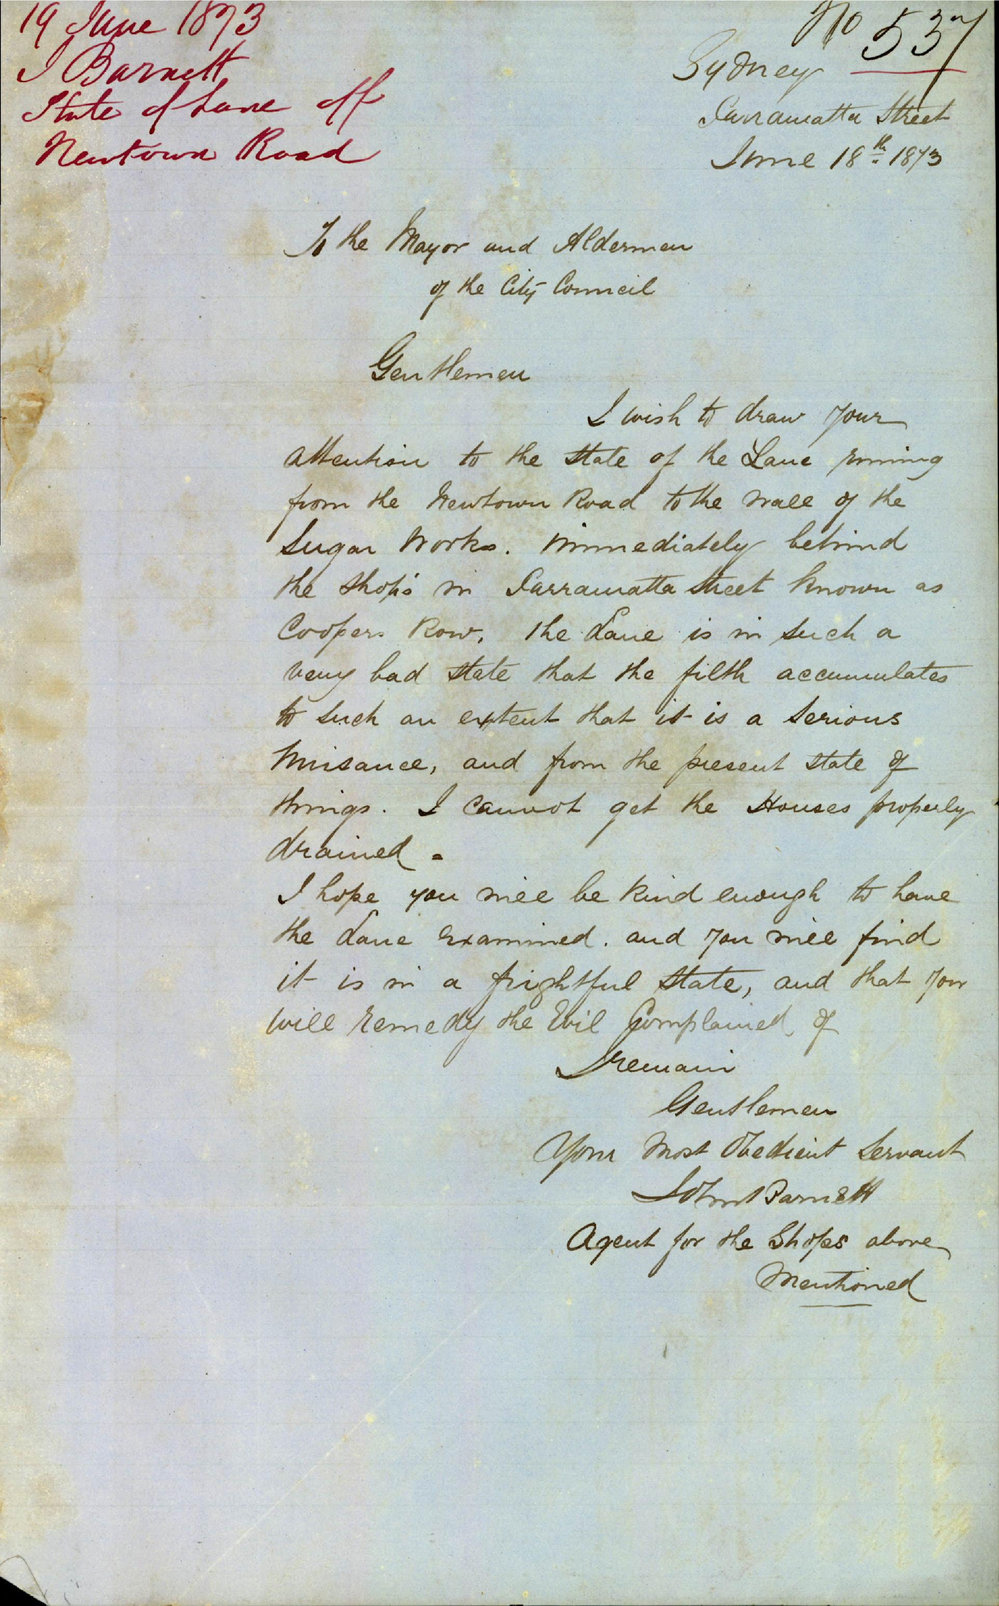 19 June 1873
J Barnett
State of Lane off
Newtown Road
No 537
Sydney
Parramatta Street
June 18th 1873
To the Mayor and Aldermen
of the City Council
Gentlemen
I wish to draw your
attention to the State of the Lane running
from the Newtown Road to the wall of the
Sugar Works. immediately behind
the Shops in Parramatta Street known as
Coopers Row, the Lane is in such a
very bad state that the filth accumulates
to such an extent that it is a serious
Nuisance, and from the present state of
things. I cannot get the Houses properly
drained.
I hope you will be kind enough to have
the Lane examined. and you will find
it is in a frightful State, and that you
will remedy the Evil Complained of
I remain
Gentlemen
Your Most Obedient Servant
John Barnett
Agent for the Shops above
Mentioned